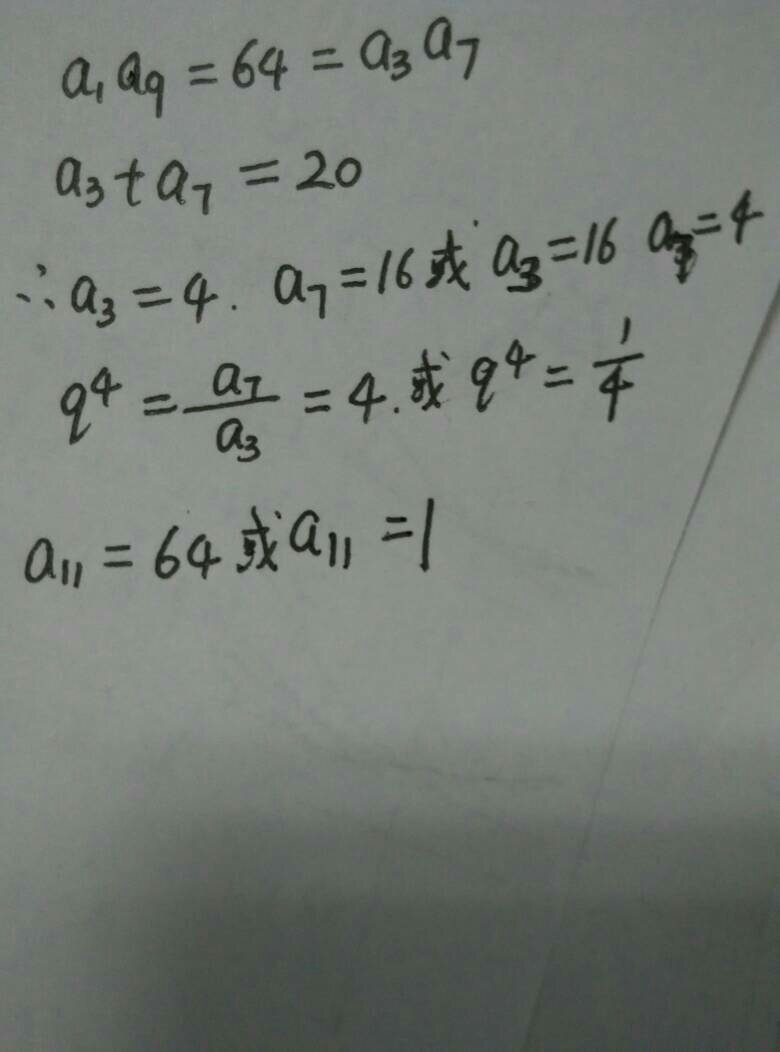 a₁a₉=64=a₃a₇
a₃+a₇=20
∴a₃=4. a₇=16或a₃=16 a₇=4
q⁴=a₇/a₃=4.或q⁴=1/4
a₁₁=64或a₁₁=1